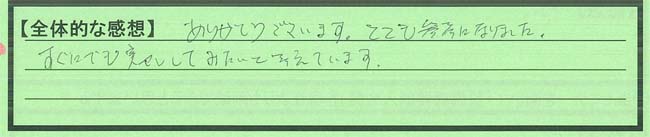 【全体的な感想】 ありがとうございます。とても参考になりました。
すぐにでも実せんしてみたいと考えています。